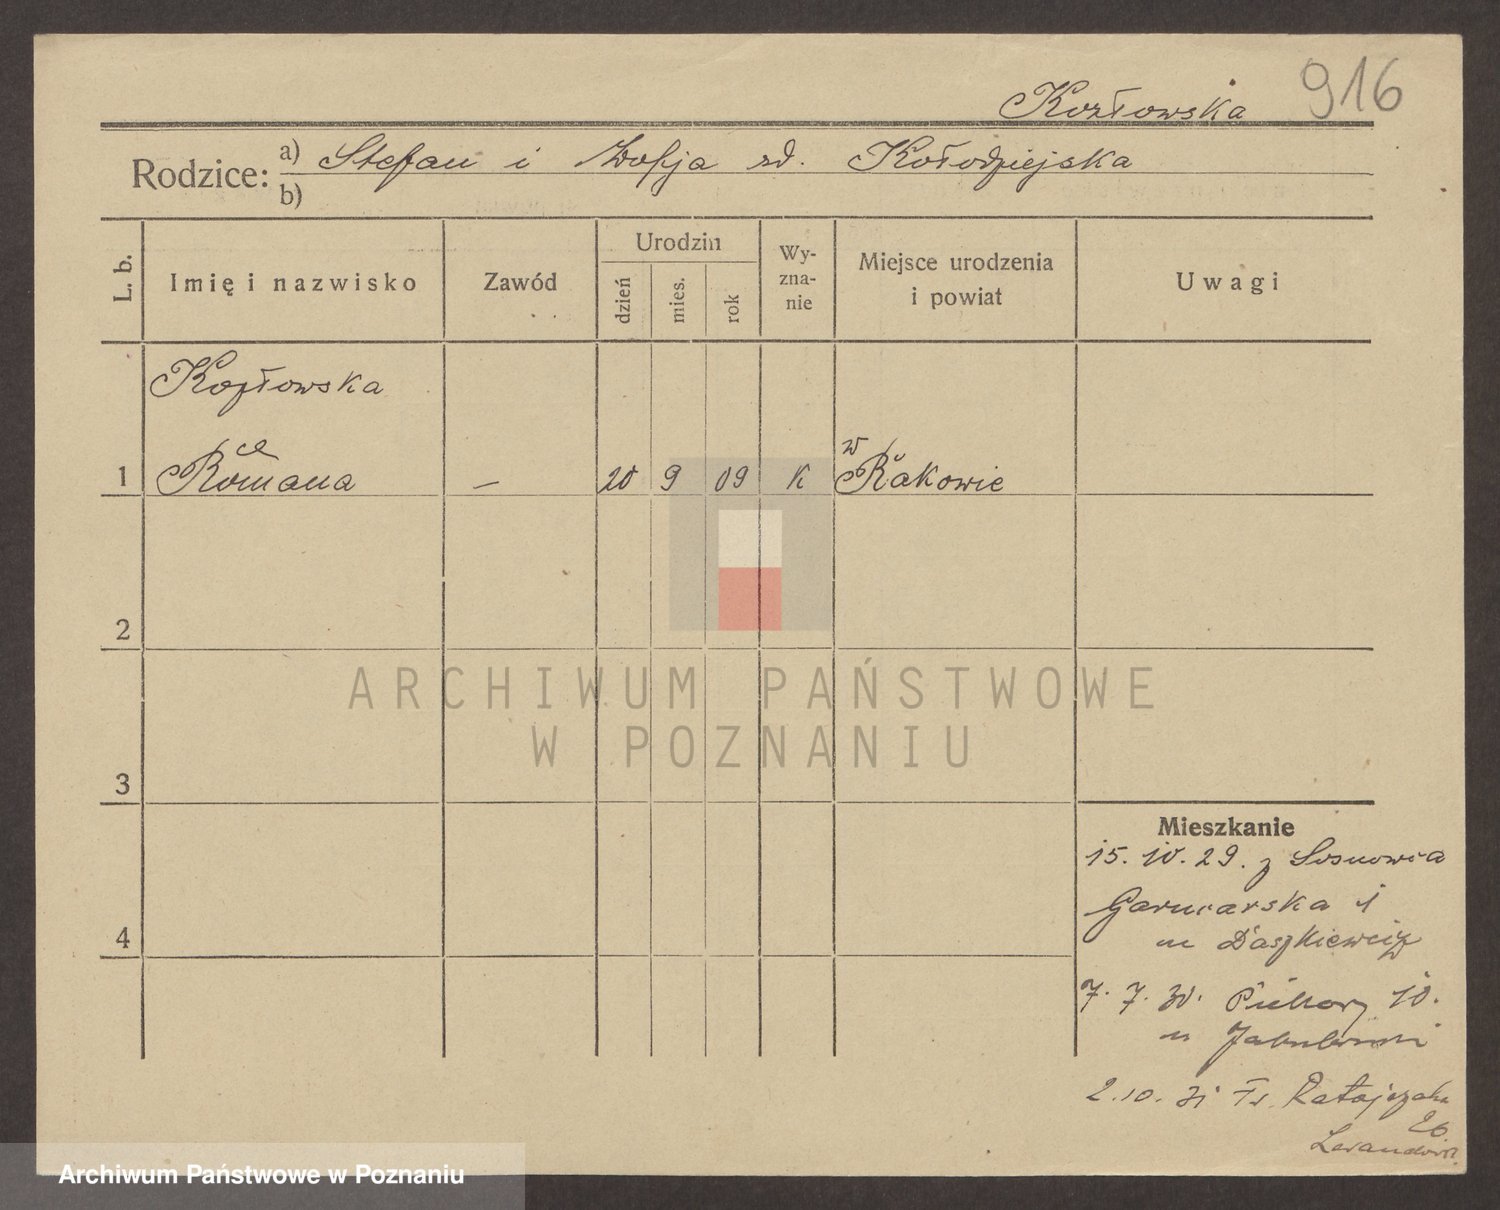 916
Kozłowska
Rodzice: a) Stefan i Zofja zd. Kołodziejska
b)
L. b.
Imię i nazwisko
Zawód
Urodzin
dzień
mies.
rok
Wy-
zna-
nie
Miejsce urodzenia
i powiat
Uwagi
Kozłowska
1 Romana — 20 9 09 K w Rakowie
2
3
4
Mieszkanie
15. 10. 29. z Sosnowca
Garncarska 1
m Daszkiewicz
7. 7. 30. Piekary 10.
2. 10. 31 Fr. Ratajczaka
26.
ARCHIWUM PAŃSTWOWE
W POZNANIU
Archiwum Państwowe w Poznaniu